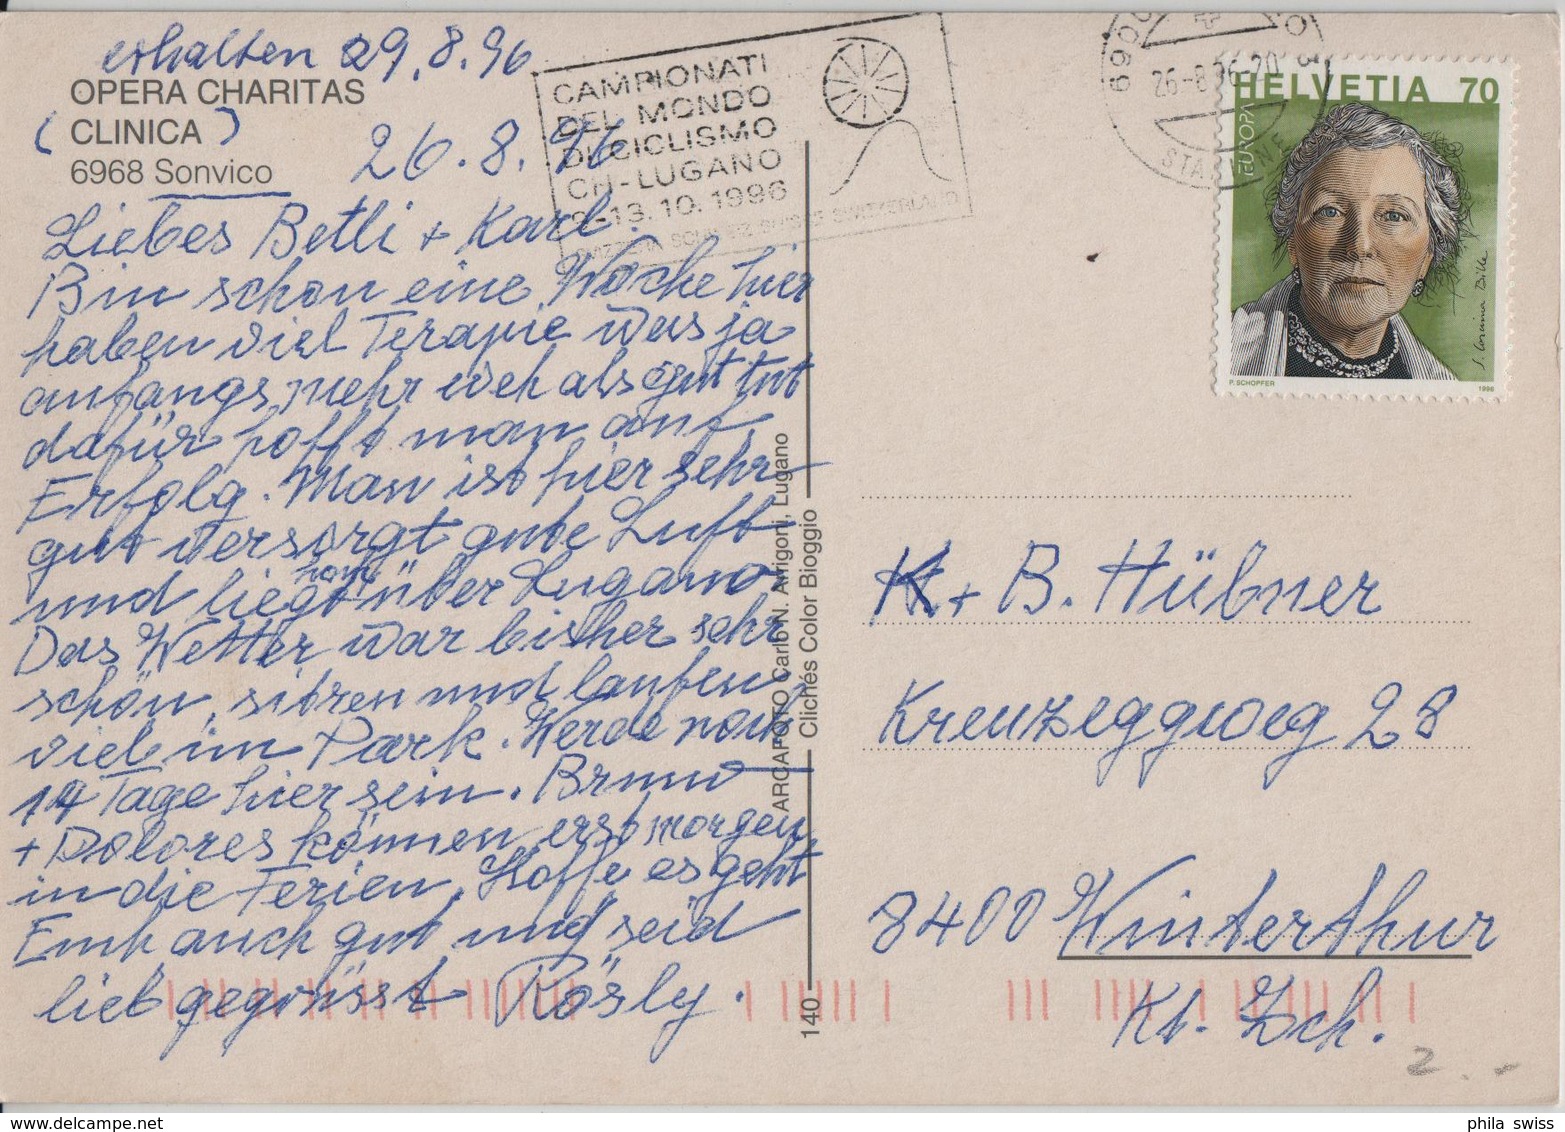 erhalten 29.8.96
OPERA CHARITAS
(CLINICA)
6968 Sonvico
26.8.96
Liebes Betli + Karl.
Bin schon eine Woche hier
haben viel Terapie was ja
anfangs mehr weh als gut tut
dafür hofft man auf
Erfolg. Man ist hier sehr
gut versorgt gute Luft
und liegt hoch über Lugano
Das Wetter war bisher sehr
schön, sitzen und laufen
viel im Park. Werde noch
14 Tage hier sein. Bruno
+ Dolores können erst morgen
in die Ferien. Hoffe es geht
Euch auch gut und seid
lieb gegrüsst Rösly.
CAMPIONATI
DEL MONDO
DI CICLISMO
CH-LUGANO
9-13.10.1996
SVIZZERA SCHWEIZ SUISSE SWITZERLAND
26-8.96-20
HELVETIA 70
EUROPA
S. Corinna Bille
P. SCHOPFER
1996
ARCAFOTO Carlo N. Arrigoni, Lugano
Clichés Color Bioggio
140
K + B. Hübner
Kreuzeggweg 28
8400 Winterthur
Kt. Zch.
2.-
phila swiss